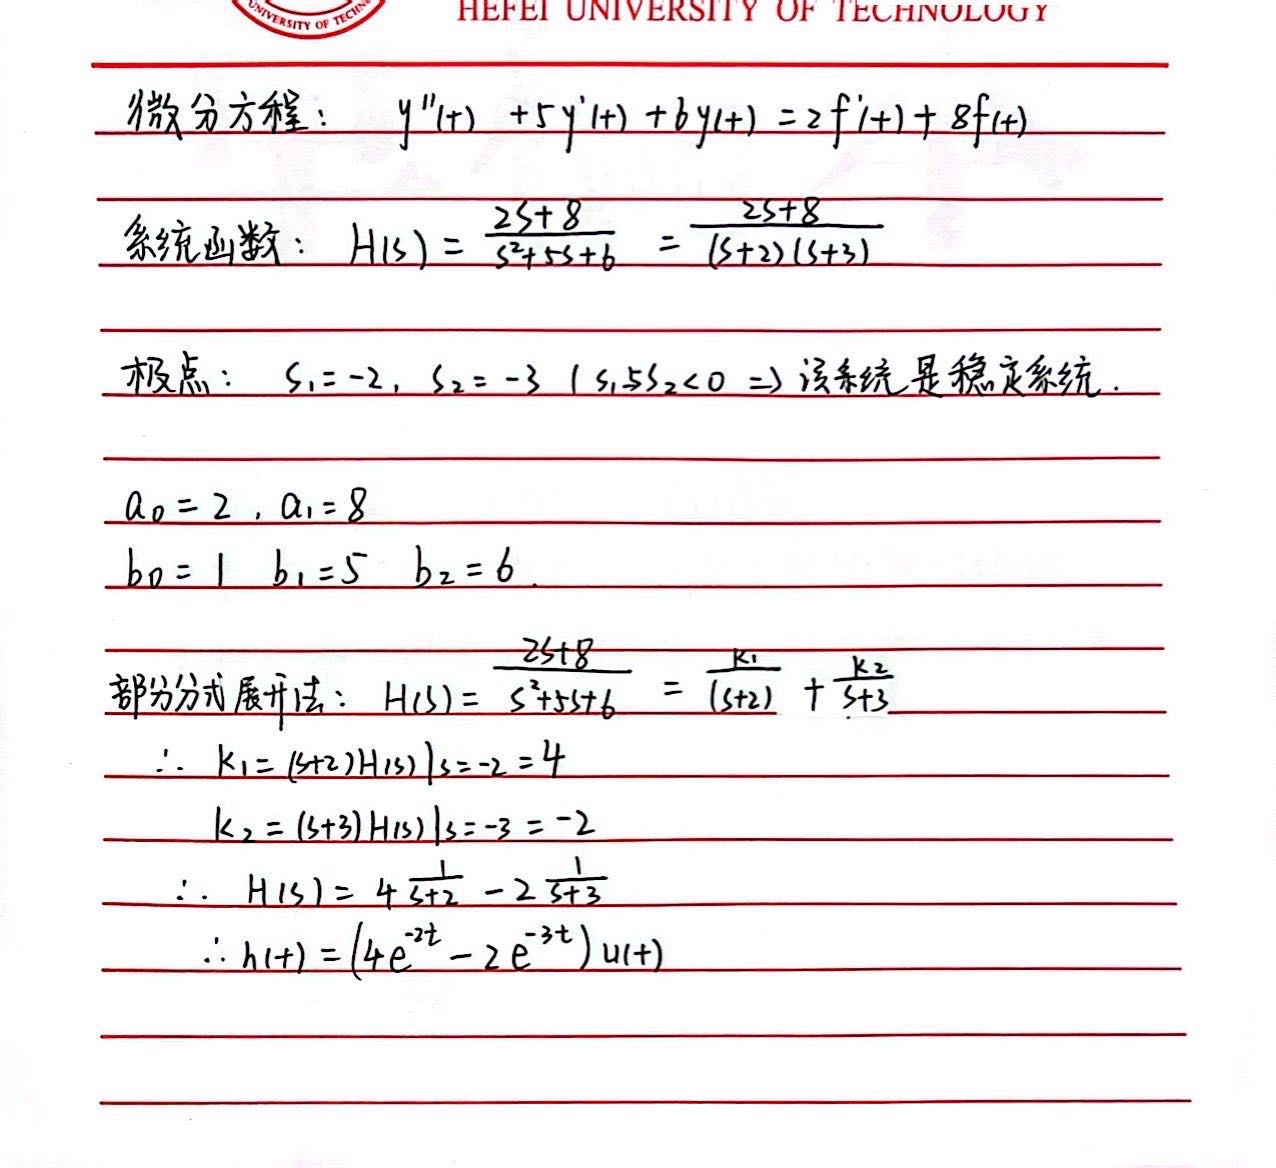 UNIVERSITY OF TECHN
HEFEI UNIVERSITY OF TECHNOLOGY
微分方程： y''(t) +5y'(t) +6y(t) =2f'(t)+ 8f(t)
系统函数： H(s) = \frac{2s+8}{s²+5s+6} = \frac{2s+8}{(s+2)(s+3)}
极点： s₁=-2, s₂=-3 ( s₁与s₂<0 => 该系统是稳定系统.
a₀=2, a₁=8
b₀=1 b₁=5 b₂=6.
部分分式展开法： H(s)= \frac{2s+8}{s²+5s+6} = \frac{k₁}{(s+2)} + \frac{k₂}{s+3}
∴ k₁= (s+2)H(s)|s=-2=4
k₂= (s+3)H(s)|s=-3=-2
∴ H(s)= 4\frac{1}{s+2} -2\frac{1}{s+3}
∴ h(t) =(4e^{-2t} -2e^{-3t})u(t)